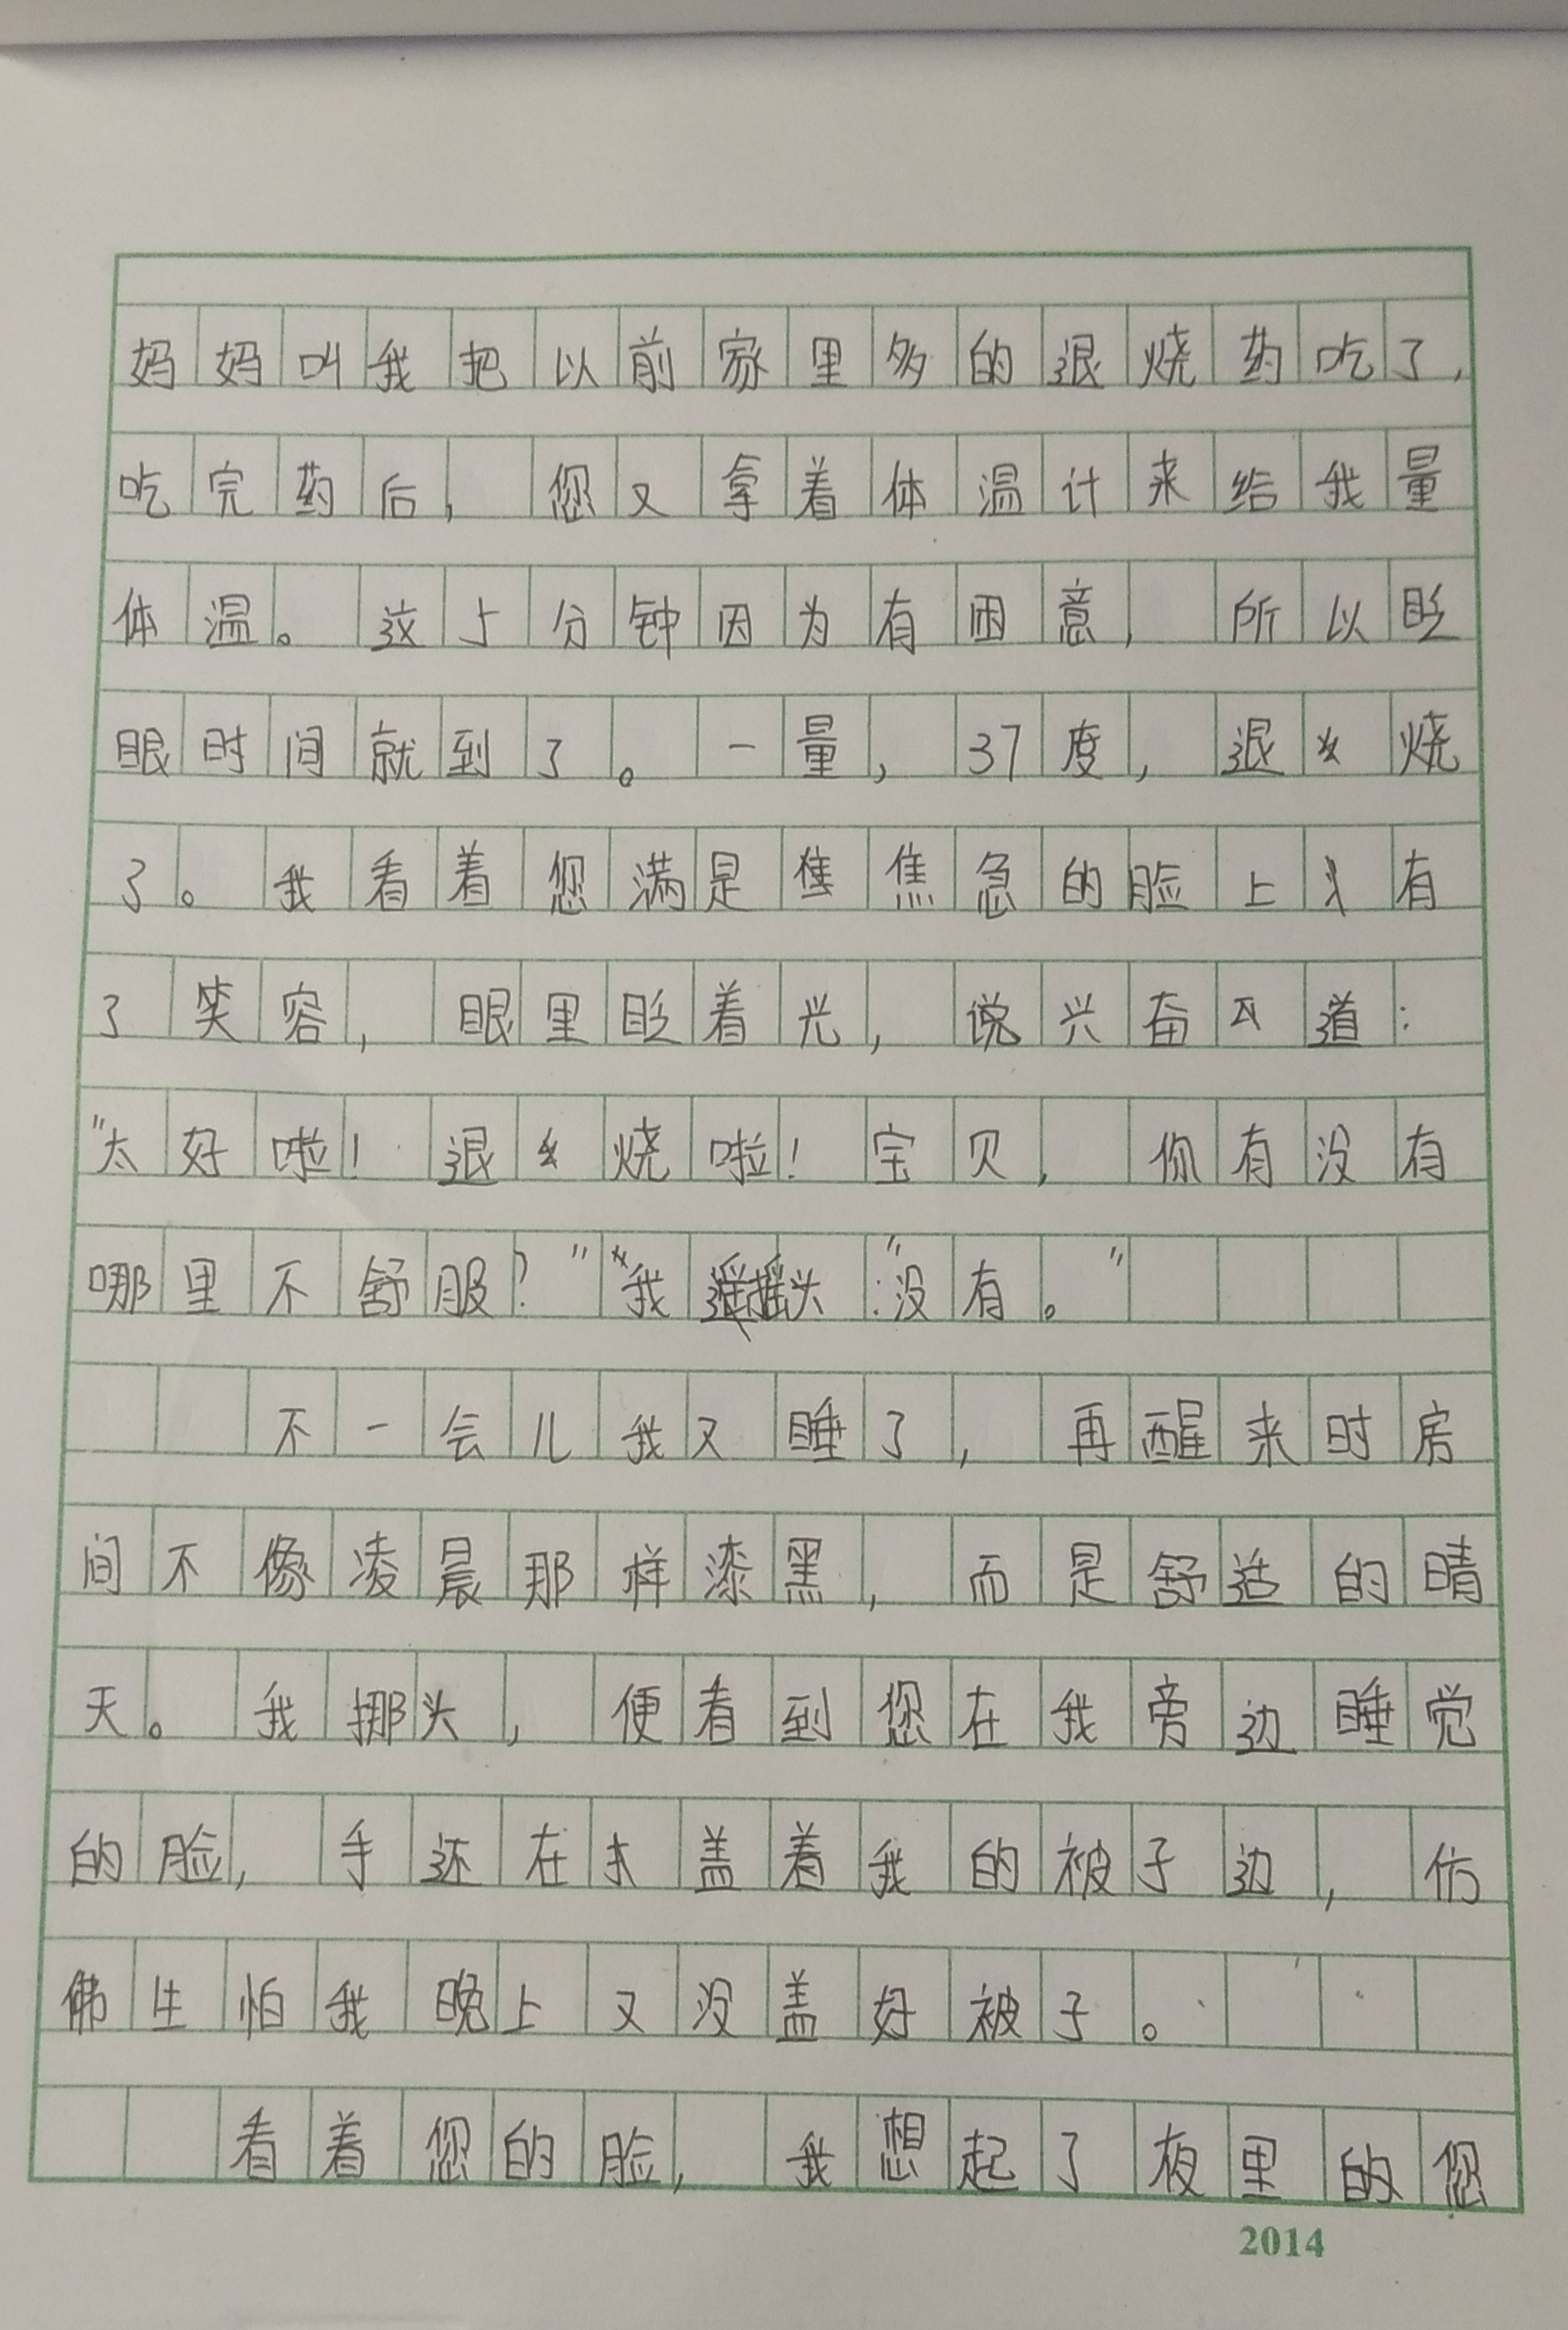 妈妈叫我把以前家里多的退烧药吃了,
吃完药后,您又拿着体温计来给我量
体温。这5分钟因为有困意,所以眨
眼时间就到了。一量,37度,退烧
了。我看着您满是焦急的脸上有
了笑容,眼里眨着光,说兴奋道:
"太好啦!退烧啦!宝贝,你有没有
哪里不舒服?"我摇头:"没有。"
不一会儿我又睡了,再醒来时房
间不像凌晨那样漆黑,而是舒适的晴
天。我挪头,便看到您在我旁边睡觉
的脸,手还在盖着我的被子边,仿
佛生怕我晚上又没盖好被子。
看着您的脸,我想起了夜里的您
2014